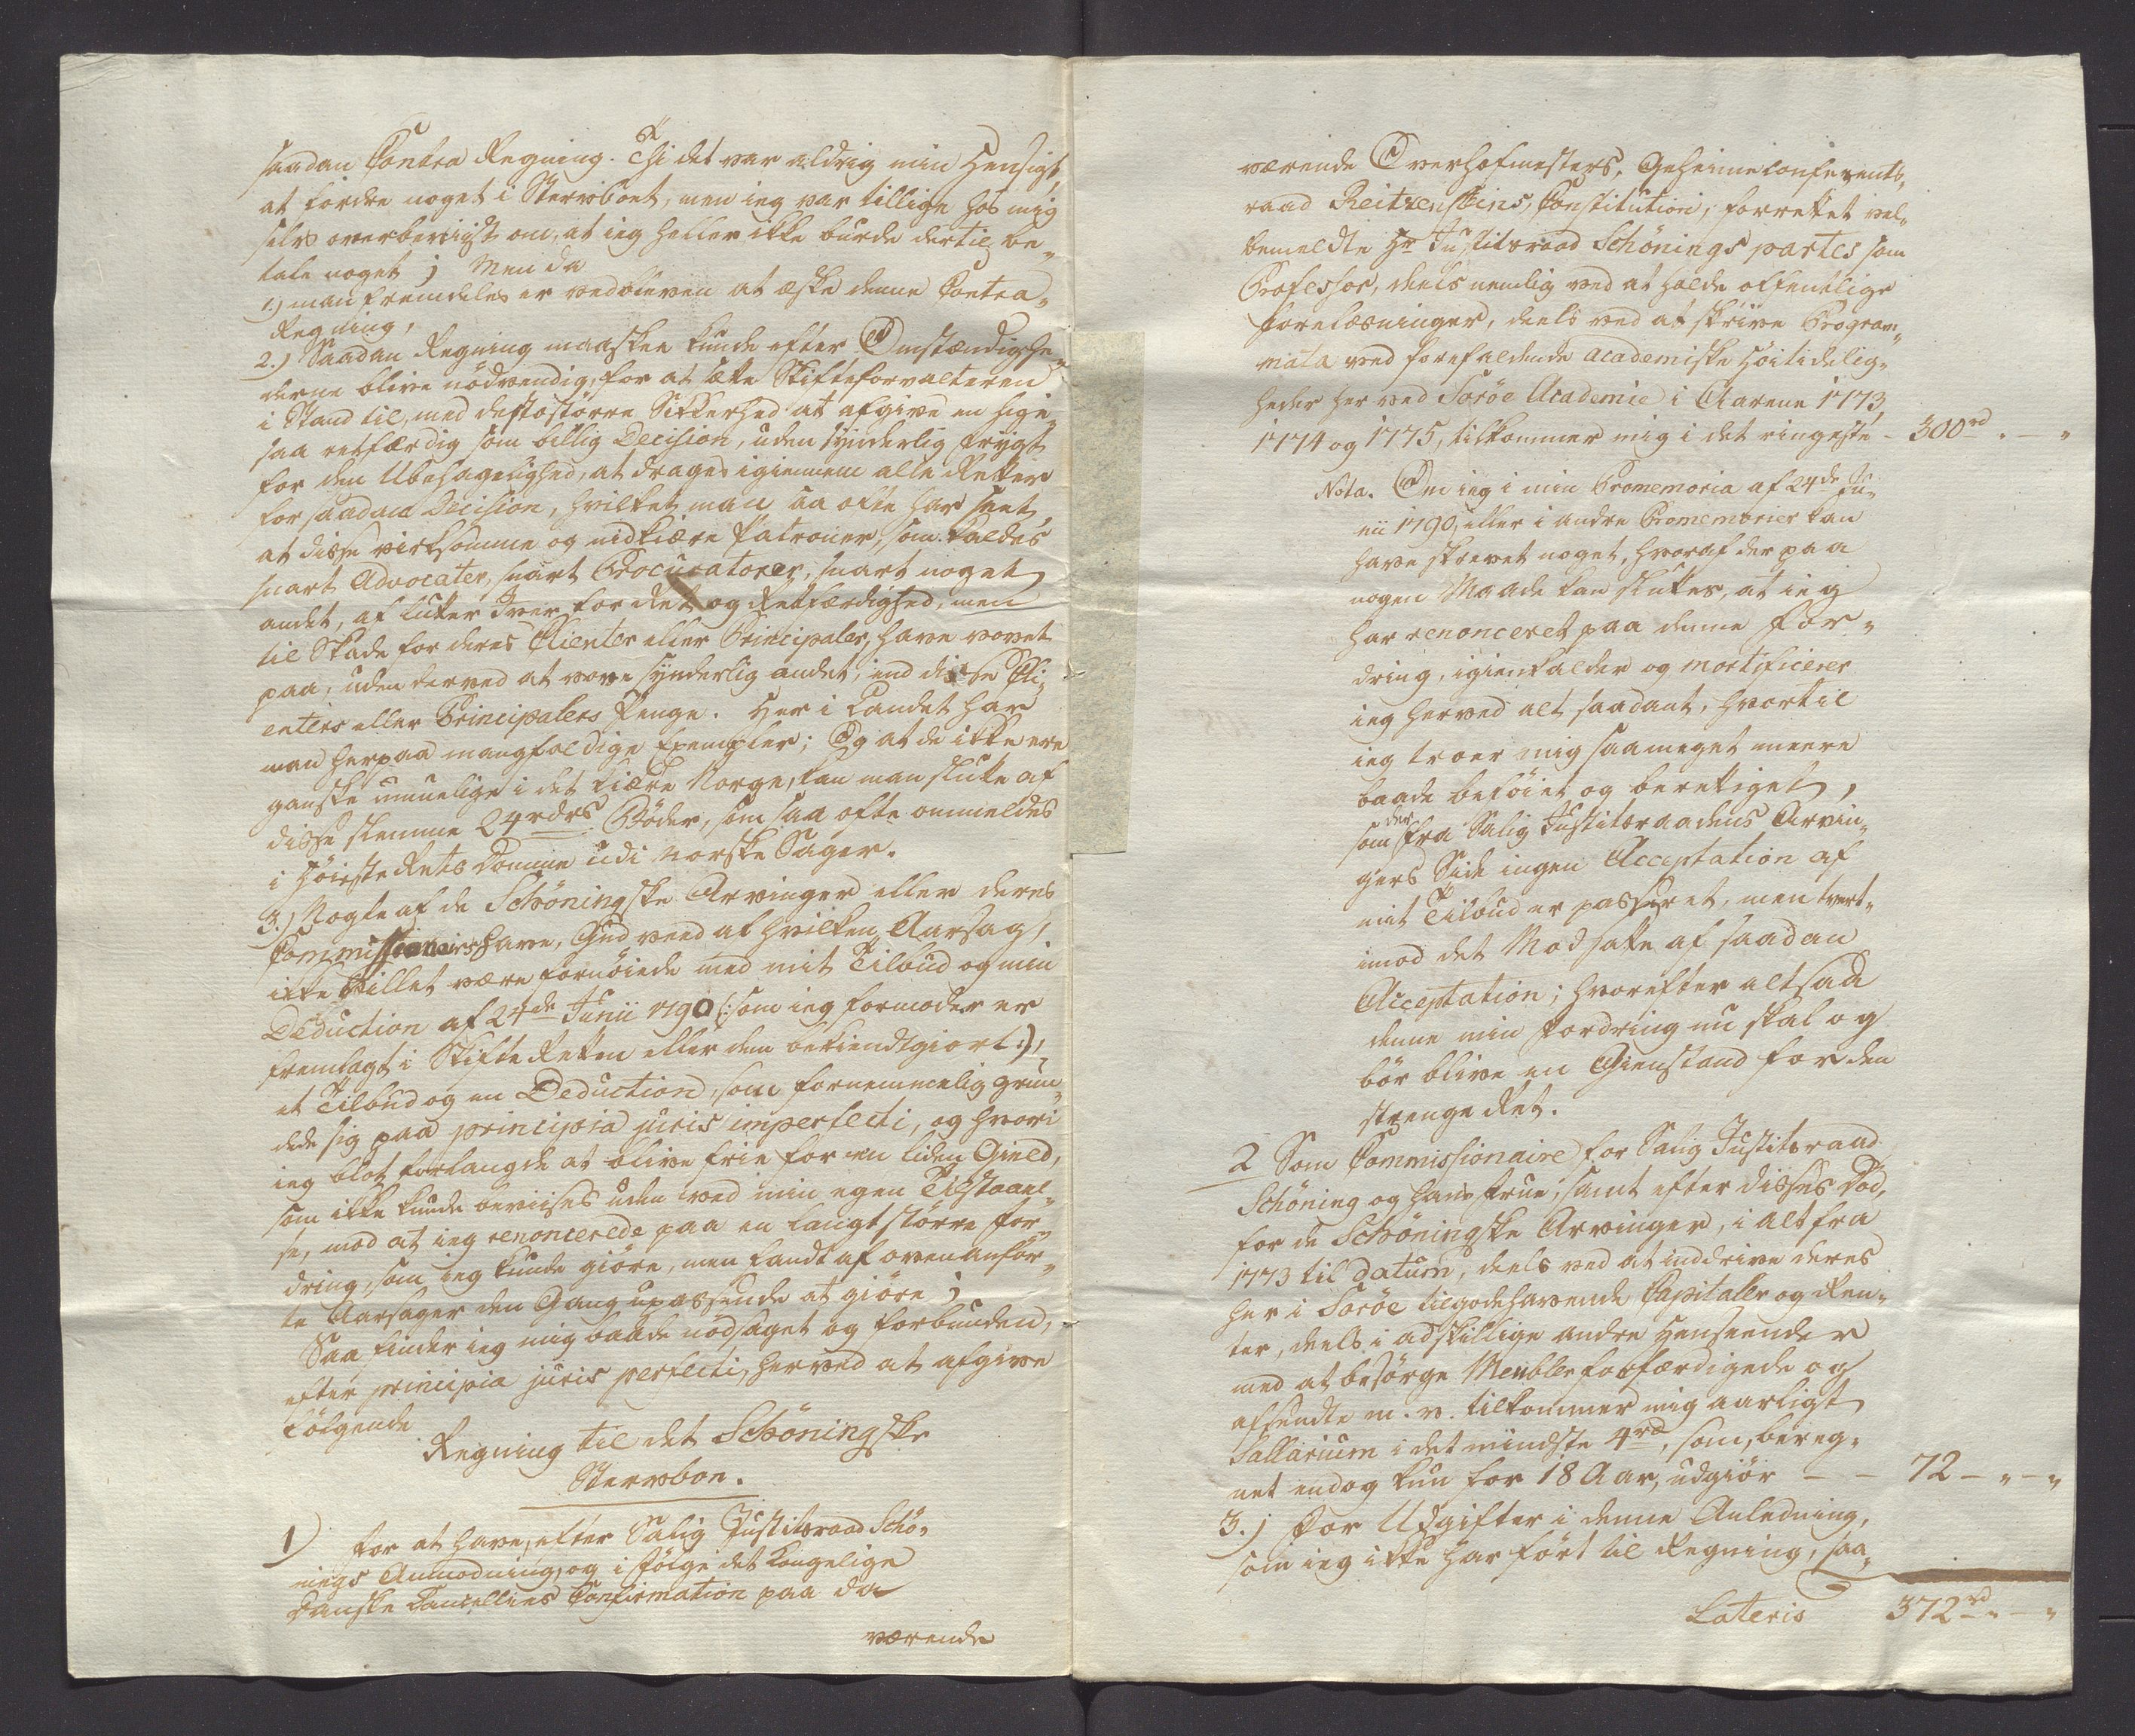 saadan Contra Regning. Thi det var aldrig min Hensigt,
at fordre noget i Sterwboet, men ieg var tillige hos mig
selv overbeviist om, at ieg heller ikke burde dertil be-
tale noget; Men da
1.) man fremdeles er vedbleven at æske denne Contra-
Regning,
2.) Saadan Regning maaskee kunde efter Omstændighe-
derne blive nödvendig, for at sætte Skifteforvalteren
i Stand til, med destostörre Sikkerhed at afgive en lige
saa retfærdig som billig Decision, uden synderlig Frygt
for den Ubehagelighed, at drages igiennem alle Retter
for saadan Decision, hvilket man saa ofte har seet,
at disse virksomme og nidkiære Patroner, som kaldes
snart Advocater, snart Procuratorer, snart noget
andet, af lutter Iver for Ret og Retfærdighed, men
til Skade for deres Clienter eller Principaler, have vovet
paa, uden derved at vove synderlig andet, end disse Cli-
enters eller Principalers Penge. Her i Landet har
man herpaa mangfoldige Exempler; Og at de ikke ere
ganske umuelige i det kiære Norge, kan man slutte af
disse slemme 24 rdrs Böder, som saa ofte ommeldes
i Höieste Rets Domme udi norske Sager.
3.) Nogle af de Schöningske Arvinger eller deres
Commissionairs have, Gud veed af hvilken Aarsag,
ikke villet være fornöiede med mit Tilbud og min
Deduction af 24de Junii 1790 (: som ieg formoder er
fremlagt i Skifte Retten eller den bekiendtgiort :),
et Tilbud og en Deduction, som fornemmelig grun-
dede sig paa principia juris imperfecti, og hvori
ieg blot forlangde at blive frie for en liden Gield,
som ikke kunde beviises uden ved min egen Tilstaael-
se, mod at ieg renoncerede paa en langt större For-
dring, som ieg kunde giöre, men fandt af ovenanför-
te Aarsager den Gang upassende at giöre;
Saa finder ieg mig baade nödsaget og forbunden,
efter principia juris perfecti, herved at afgive
fölgende
Regning til det Schöningske
Sterwboe.
1) For at have, efter Salig Justitsraad Schö-
nings Anmodning, og i Fölge det Kongelige
Danske Cancellies Confirmation paa da
værende
værende Overhofmesters, Geheimeconferents-
raad Reitzensteins, Constitution, forrettet vel-
bemeldte Hr Justitsraad Schönings partes som
Professor, deels nemlig ved at holde offentlige
Forelæsninger, deels ved at skrive Program-
mata ved forefaldende academiske Höitidelig-
heder her ved Soröe Academie i Aarene 1773,
1774 og 1775, tilkommer mig i det ringeste - 300rd . - "
Nota. Om ieg i min Promemoria af 24de Ju-
nii 1790, eller i andre Promemorier kan
have skrevet noget, hvoraf der paa
nogen Maade kan sluttes, at ieg
har renonceret paa denne For-
dring, igienkalder og mortificerer
ieg herved alt saadant, hvortil
ieg troer mig saameget meere
baade beföiet og berettiget,
som der fra Salig Justitsraadens Arvin-
gers Side ingen Acceptation af
mit Tilbud er passeret, men tvert-
imod det Modsatte af saadan
Acceptation; hvorefter altsaa
denne min Fordring nu skal og
bör blive en Gienstand for den
strenge Ret.
2 Som Commissionaire for Salig Justitsraad
Schöning og hans Frue, samt efter disses Död,
for de Schöningske Arvinger, i alt fra
1773 til datum, deels ved at inddrive deres
her i Soröe tilgodehavende Capitaler og Ren-
ter, deels i adskillige andre Henseender
med at besörge Meubler forfærdigede og
afsendte m. v. tilkommer mig aarligt
Sallarium i det mindste 4rd, som, bereg-
net endog kun for 18 Aar, udgiör - - 72 - " - "
3.) For Udgifter i denne Anledning,
som ieg ikke har fört til Regning, saa-
Lateris 372rd " - "